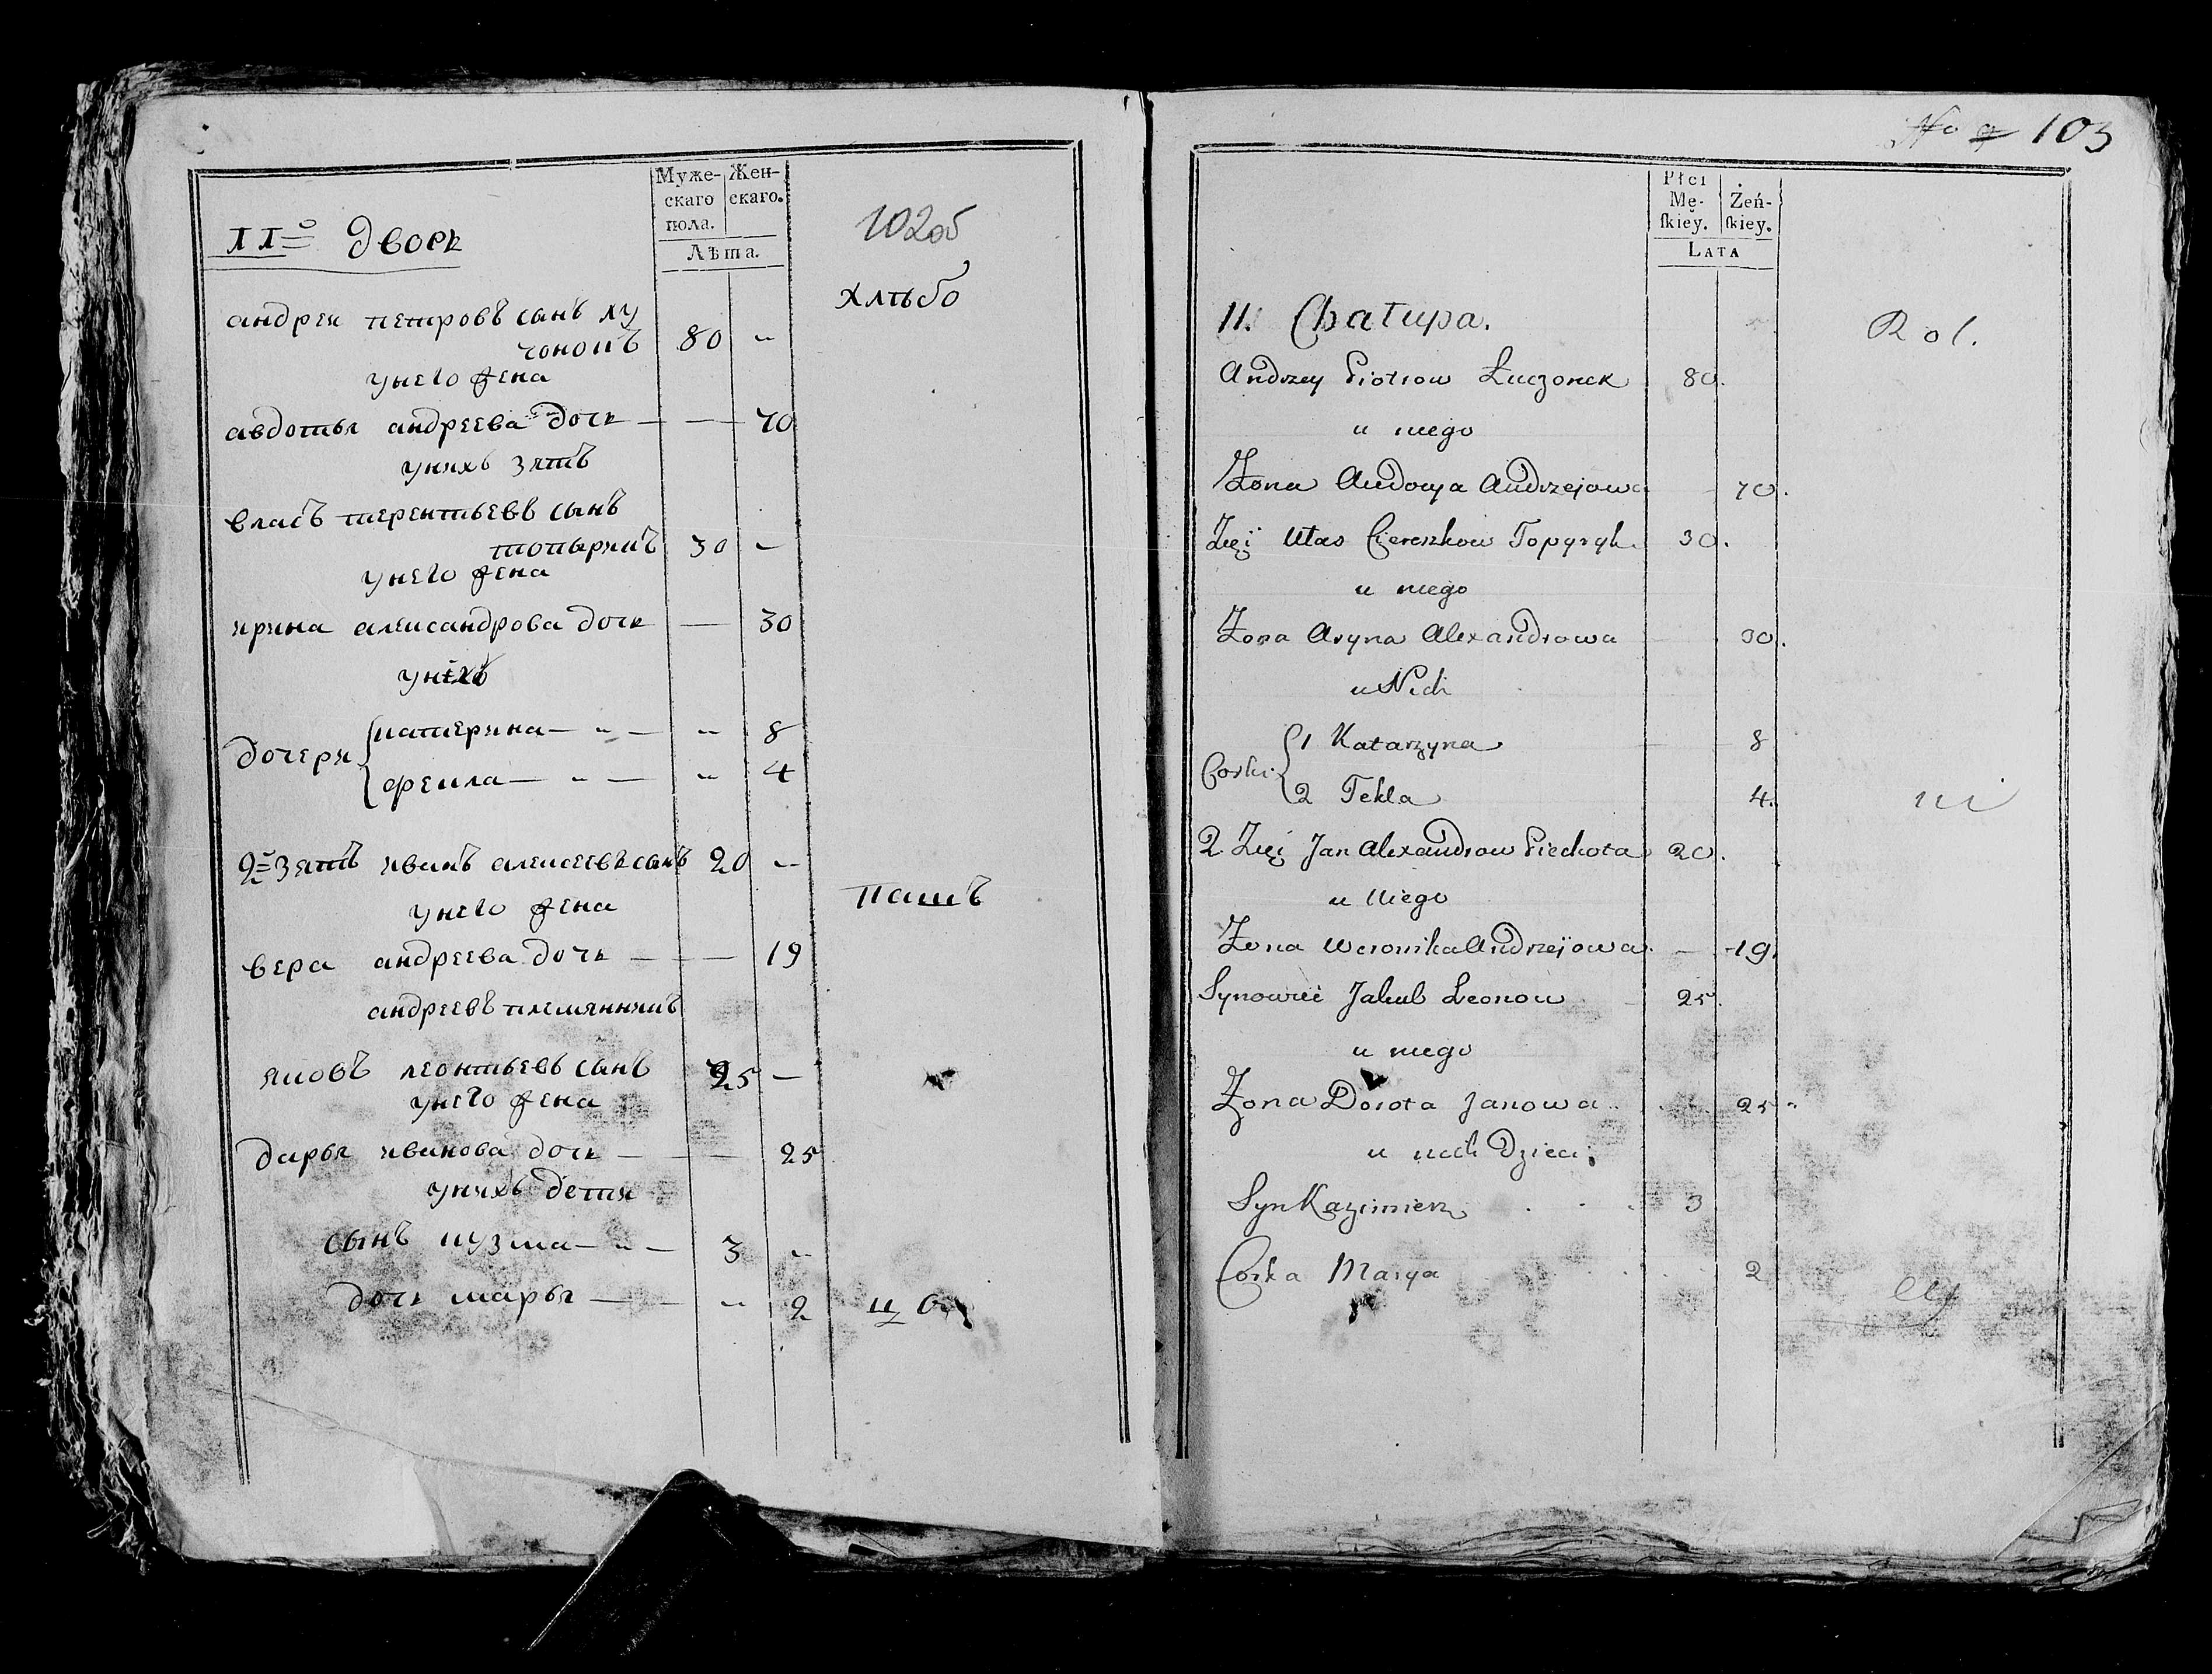 Муже-
скаго
пола.
Жен-
скаго.
Лѣта.
102об
11го дворъ
хлѣбо
андреи петровъ сынъ лу
чонокъ 80 -
унего жена
авдотья андреева дочь — — 70
унихъ зять
власъ терентьевъ сынъ
топырикъ 30 -
унего жена
ирина александрова дочь — 30
унихъ
дочери
катерина — „ — „ 8
фекла — „ — „ 4
2й зять иванъ алексеевъ сынъ 20 -
пашъ
унего жена
вера андреева дочь — — 19
андреевъ племянникъ
яковъ леонтьевъ сынъ 25 —
унего жена
дарья иванова дочь — — 25
унихъ дети
сынъ кузма — „ — 3 „
дочь марья — — „ 2
No 103
Płci
Mę-
ſkiey.
Żeń-
ſkiey.
LATA
11. Chatupa.
Rol.
Andrzey Piotrow Łuczonek 80.
u niego
Żona Audocya Andrzejowa 70.
Zięć Ułas Ciereszkow Topyryk 30.
u niego
Żona Aryna Alexandrowa 30.
u Nich
Corki
1 Katarzyna 8
2 Tekla 4.
ni
2 Zięć Jan Alexandrow Piechota 20.
u Niego
Żona Weronika Andrzejowa — 19.
Synowiec Jakub Leonow 25.
u niego
Żona Dorota Janowa 25
u nich Dzieci
Syn Kazimierz 3
Corka Marya 2